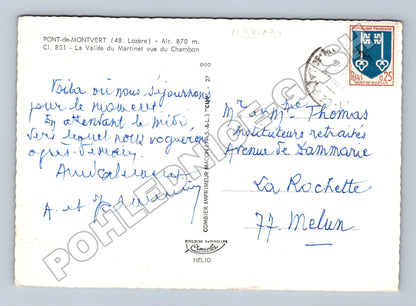 PONT-de-MONTVERT (48. Lozère) - Alt. 870 m.
Cl. 851 - La Vallée du Martinet vue du Chambon
Voilà où nous séjournons
pour le moment
En attendant le midi
vers lequel nous voguerons
après-demain
Amicalement
A. et
COMBIER IMPRIMEUR MACON (S.-&-L.) "CIM"
HELIO
RÉPUBLIQUE FRANÇAISE
0,25
MONT-DE-MARSAN
Mr et Mme Thomas
Instituteurs retraités
Avenue de Dammarie
La Rochette
77 Melun
POHLEDNICE-CASH